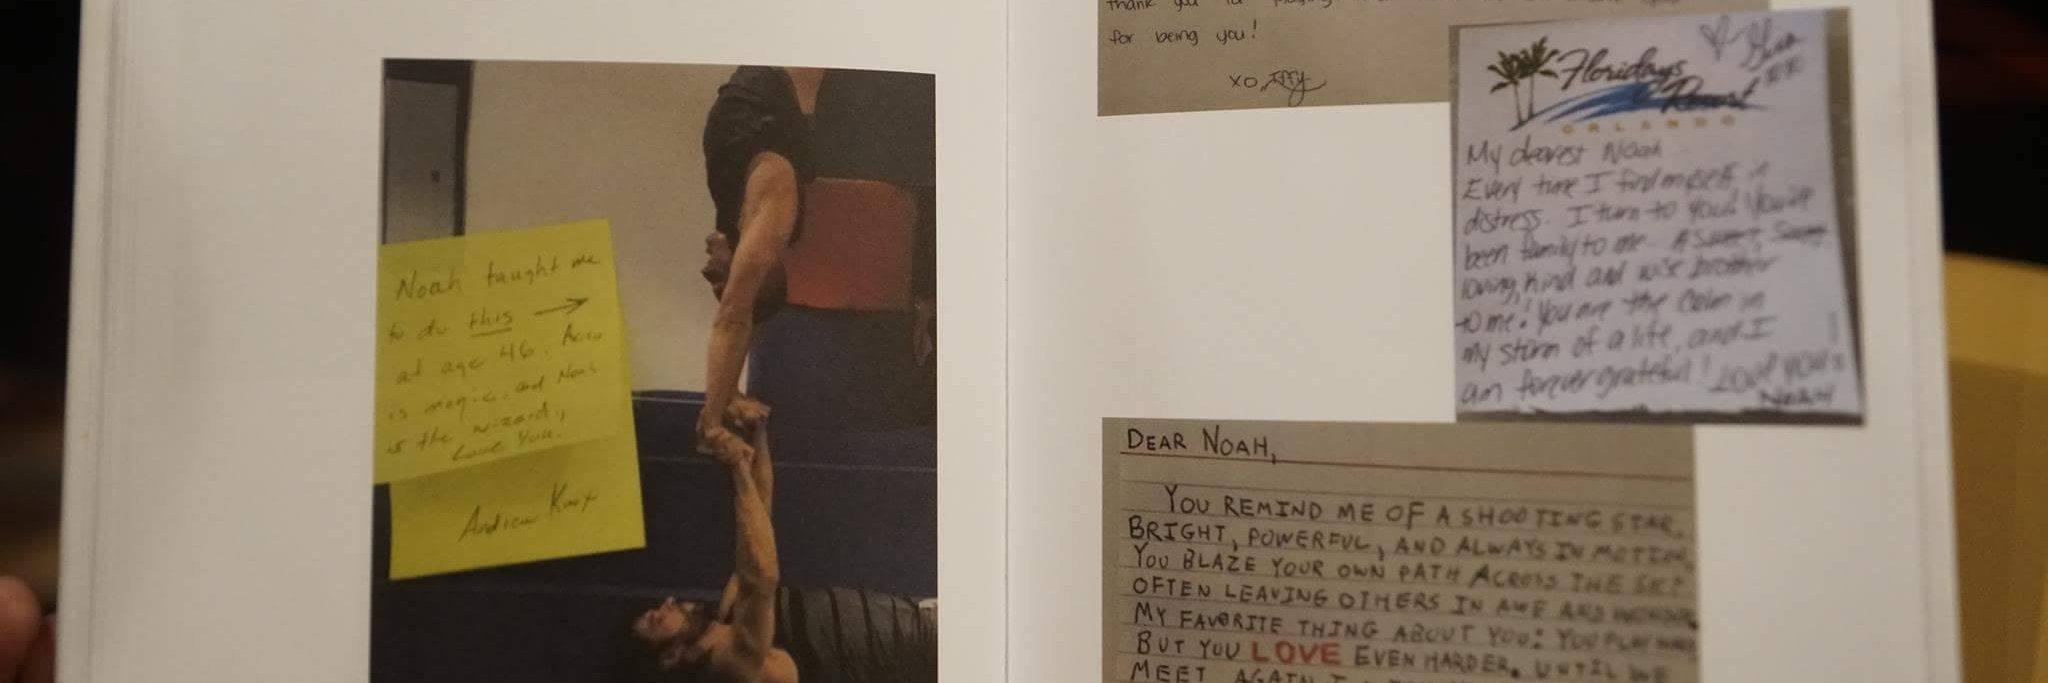 Noah taught me
to do this →
at age 46. Acro
is magic, and Noah
is the wizard,
Love You.
Andrew Knox
thank you for playing
for being you!
xo,
Floridays
Resort
ORLANDO
My dearest Noah
Every time I find myself in
distress. I turn to you! You've
been family to me. A
loving, kind and wise brother
to me! You are the calm in
my storm of a life, and I
am forever grateful! Love you
Noah
DEAR NOAH,
YOU REMIND ME OF A SHOOTING STAR,
BRIGHT, POWERFUL, AND ALWAYS IN MOTION,
YOU BLAZE YOUR OWN PATH ACROSS THE SKY
OFTEN LEAVING OTHERS IN AWE AND
MY FAVORITE THING ABOUT YOU: YOU PLAY HARD
BUT YOU LOVE EVEN HARDER. UNTIL WE
MEET AGAIN I